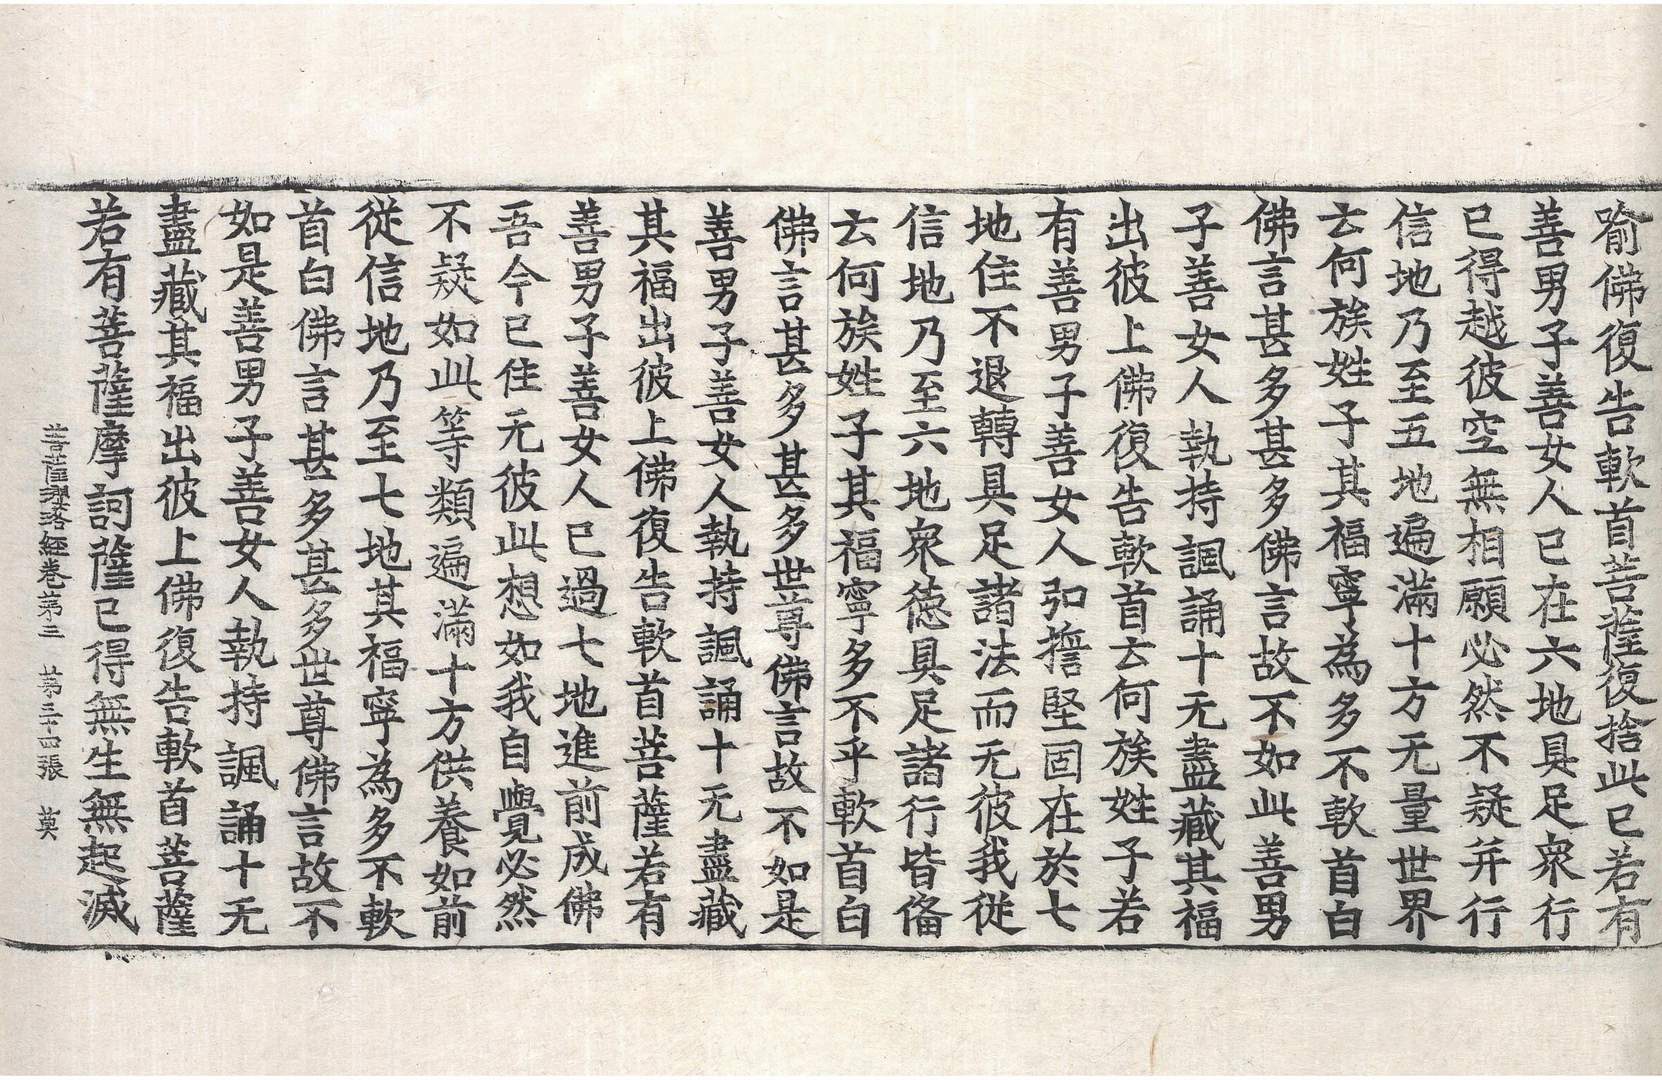 喻佛復告軟首菩薩復捨此已若有
善男子善女人已在六地具足衆行
已得越彼空無相願必然不疑并行
信地乃至五地遍滿十方无量世界
云何族姓子其福寧為多不軟首白
佛言甚多甚多佛言故不如此善男
子善女人執持諷誦十无盡藏其福
出彼上佛復告軟首云何族姓子若
有善男子善女人弘擔堅固在於七
地住不退轉具足諸法而无彼我從
信地乃至六地衆德具足諸行皆俻
云何族姓子其福寧多不乎軟首白
佛言甚多甚多世尊佛言故不如是
善男子善女人執持諷誦十无盡藏
其福出彼上佛復告軟首菩薩若有
善男子善女人已過七地進前成佛
吾今已住元彼此想如我自覺必然
不疑如此等類遍滿十方供養如前
從信地乃至七地其福寧為多不軟
首白佛言甚多甚多世尊佛言故不
如是善男子善女人執持諷誦十无
盡藏其福出彼上佛復告軟首菩薩
若有菩薩摩訶薩已得無生無起滅
菩薩瓔珞經卷第三 第三十四張 莫